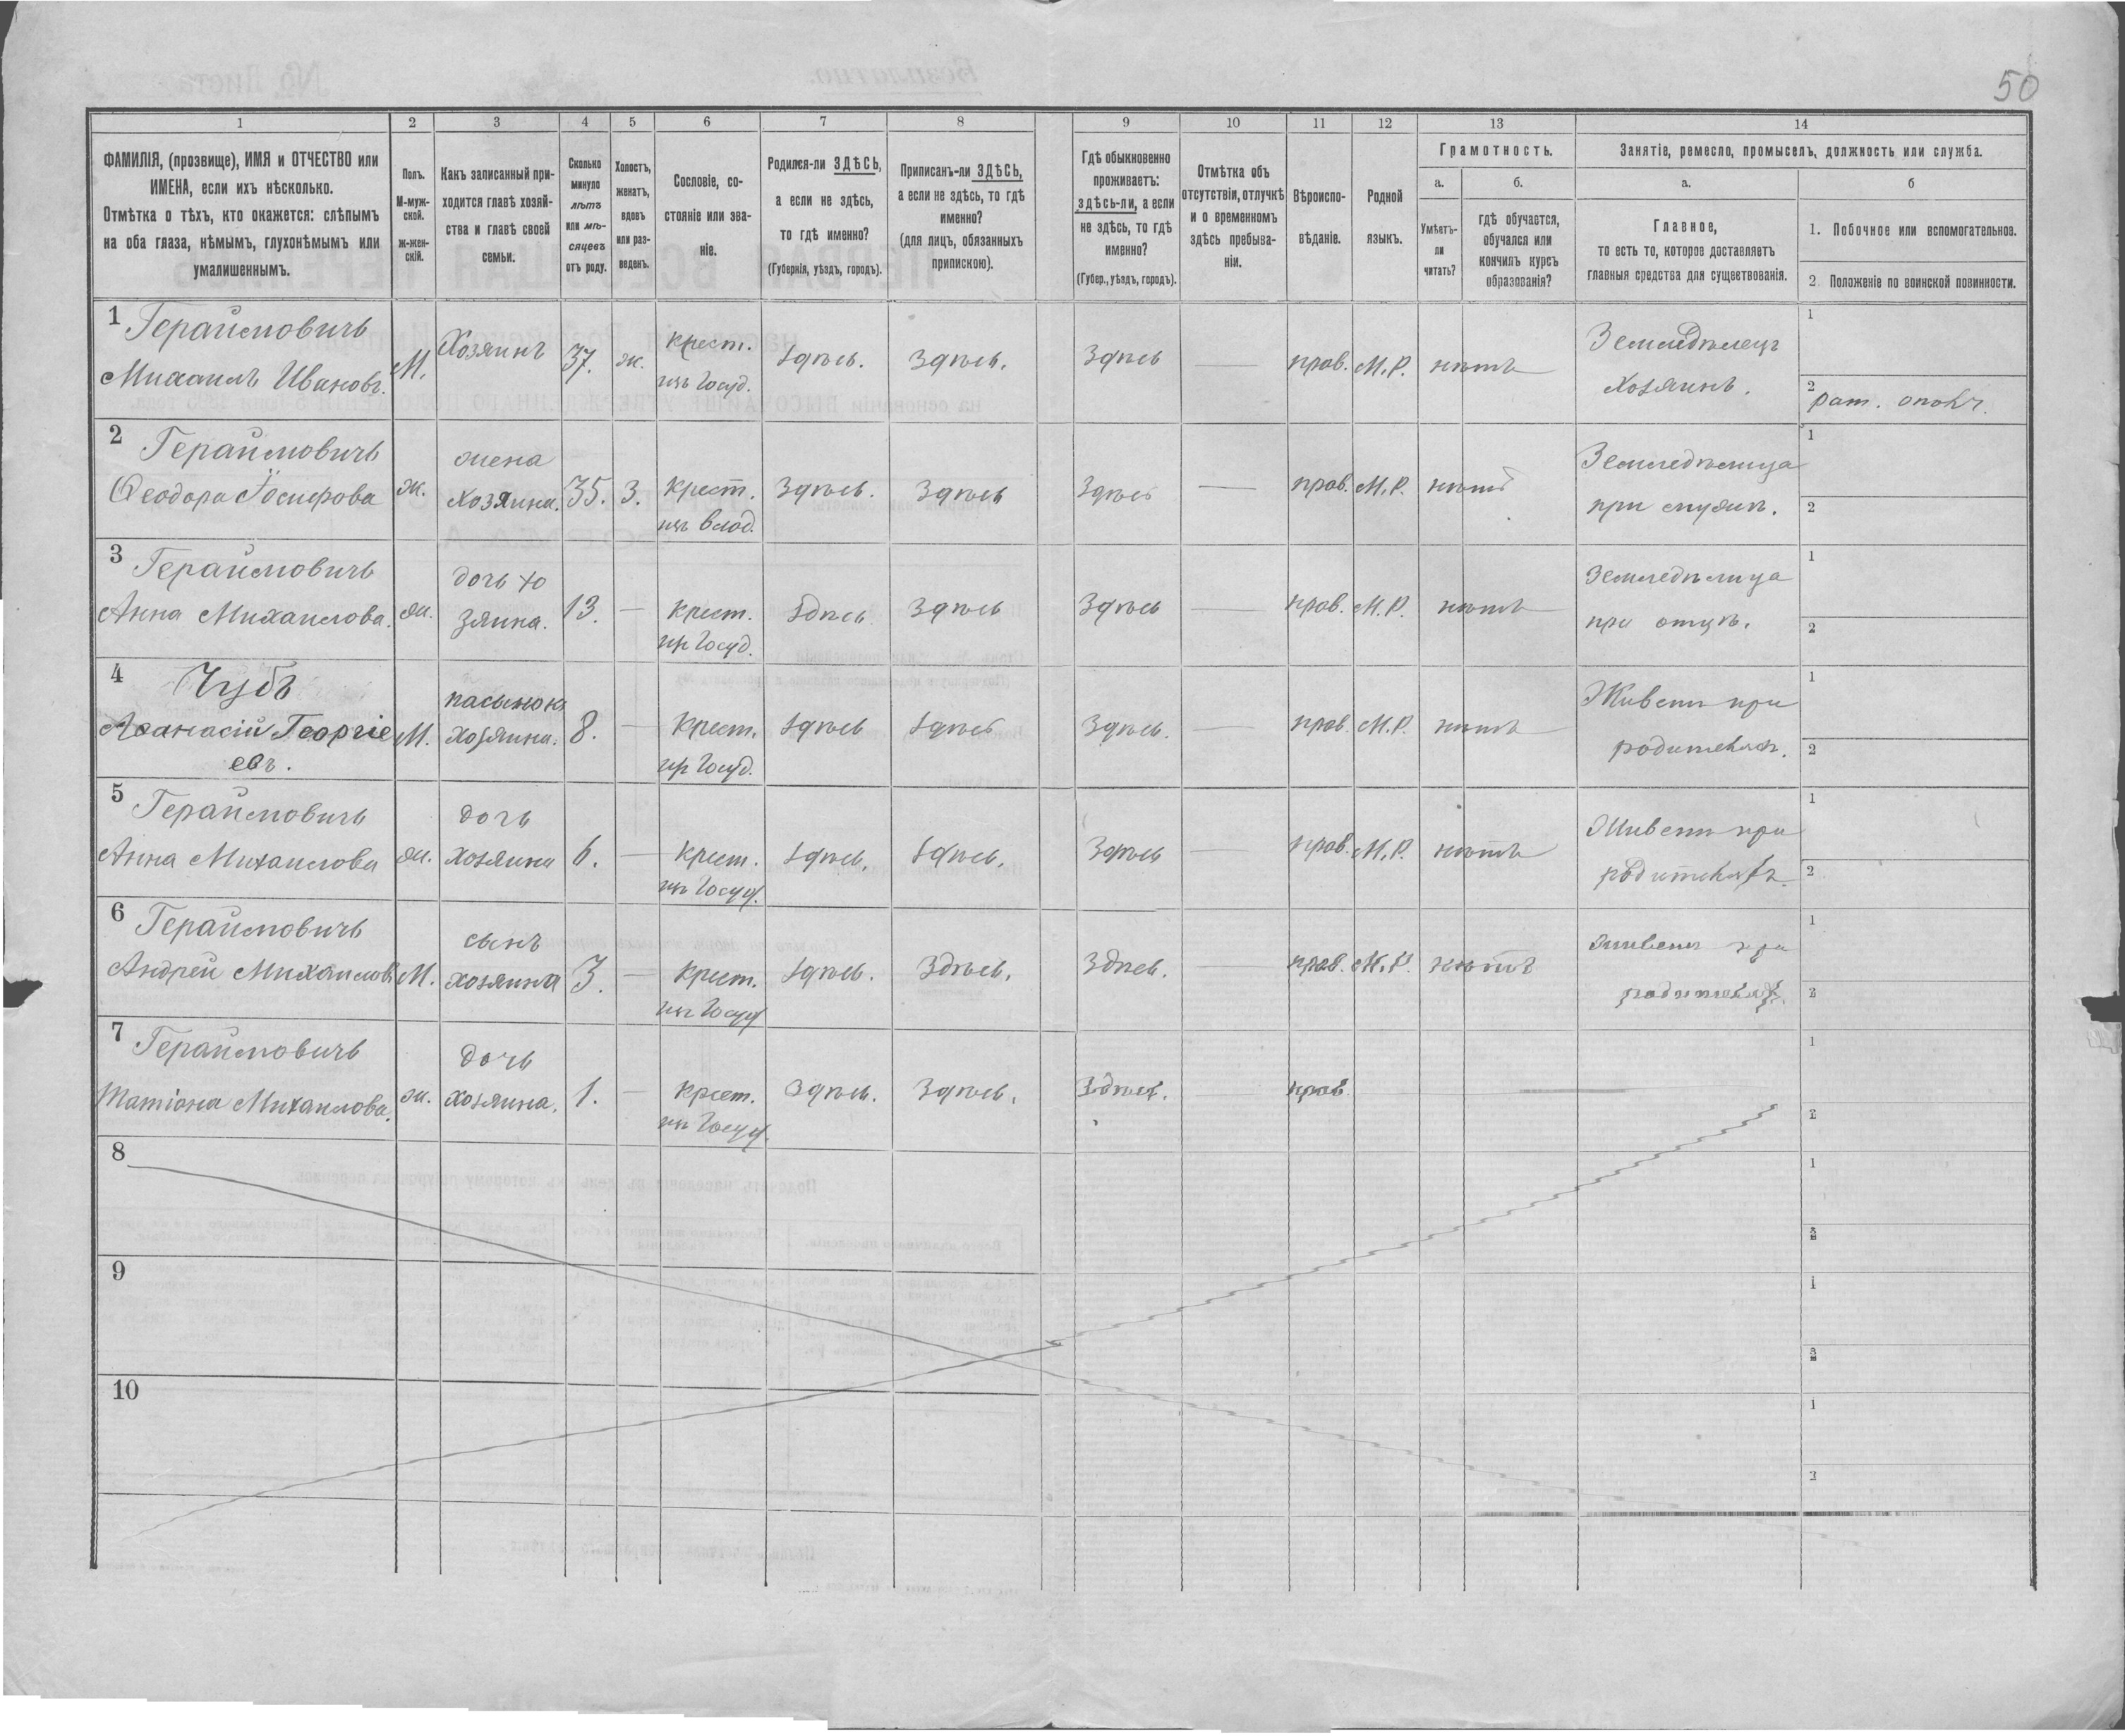 50
1 2 3 4 5 6 7 8 9 10 11 12 13 14
ФАМИЛІЯ, (прозвище), ИМЯ и ОТЧЕСТВО или
ИМЕНА, если ихъ нѣсколько.
Отмѣтка о тѣхъ, кто окажется: слѣпымъ
на оба глаза, нѣмымъ, глухонѣмымъ или
умалишеннымъ.
Полъ.
М-муж-
ской.
ж-жен-
скій.
Какъ записанный при-
ходится главѣ хозяй-
ства и главѣ своей
семьи.
Сколько
минуло
лѣтъ
или мѣ-
сяцевъ
отъ роду.
Холостъ,
женатъ,
вдовъ
или раз-
веденъ.
Сословіе, со-
стояніе или зва-
ніе.
Родился-ли ЗДѢСЬ,
а если не здѣсь,
то гдѣ именно?
(Губернія, уѣздъ, городъ).
Приписанъ-ли ЗДѢСЬ,
а если не здѣсь, то гдѣ
именно?
(для лицъ, обязанныхъ
припискою).
Гдѣ обыкновенно
проживаетъ:
здѣсь-ли, а если
не здѣсь, то гдѣ
именно?
(Губер., уѣздъ, городъ).
Отмѣтка объ
отсутствіи, отлучкѣ
и о временномъ
здѣсь пребыва-
ніи.
Вѣроиспо-
вѣданіе.
Родной
языкъ.
Грамотность.
а.
Умѣетъ-
ли
читать?
б.
гдѣ обучается,
обучался или
кончилъ курсъ
образованія?
Занятіе, ремесло, промыселъ, должность или служба.
а.
Главное,
то есть то, которое доставляетъ
главныя средства для существованія.
б
1. Побочное или вспомогательное.
2. Положеніе по воинской повинности.
1 Гераймовичъ
Михаилъ Ивановъ.
М.
Хозяинъ
37.
ж.
крест.
изъ Госуд.
Здѣсь.
Здѣсь.
Здѣсь
—
прав.
М.Р.
нѣтъ
Земледѣлецъ
хозяинъ.
1
2 рат. ополч.
2 Гераймовичъ
Ѳеодора Іосифова
ж.
жена
хозяина.
35.
З.
крест.
изъ влад.
Здѣсь.
Здѣсь
Здѣсь
—
прав.
М.Р.
нѣтъ
Земледѣлица
при мужѣ.
1
2
3 Гераймовичъ
Анна Михаилова.
ж.
дочь хо
зяина.
13.
—
крест.
изъ Госуд.
Здѣсь
Здѣсь
Здѣсь
—
прав.
М.Р.
нѣтъ
Земледѣлица
при отцѣ.
1
2
4 Чубъ
Аѳанасій Георгіе
евъ.
М.
пасынокъ
хозяина.
8.
—
крест.
изъ Госуд.
Здѣсь
Здѣсь
Здѣсь.
—
прав
М.Р.
нѣтъ
Живетъ при
родителяхъ.
1
2
5 Гераймовичъ
Анна Михаилова
ж.
дочь
хозяина
6.
—
крест.
изъ Госуд.
Здѣсь.
Здѣсь.
Здѣсь
—
прав.
М.Р.
нѣтъ
Живетъ при
родителяхъ.
1
2
6 Гераймовичъ
Андрей Михаиловъ
М.
сынъ
хозяина
3.
—
крест.
изъ Госуд
Здѣсь.
Здѣсь.
Здѣсь.
—
прав.
М.Р.
нѣтъ
живетъ при
родителяхъ.
1
2
7 Гераймовичъ
Татіана Михаилова.
ж.
дочь
хозяина.
1.
—
крест.
изъ Госуд.
Здѣсь.
Здѣсь.
Здѣсь.
—
прав
1
2
8
1
2
9
1
2
10
1
2